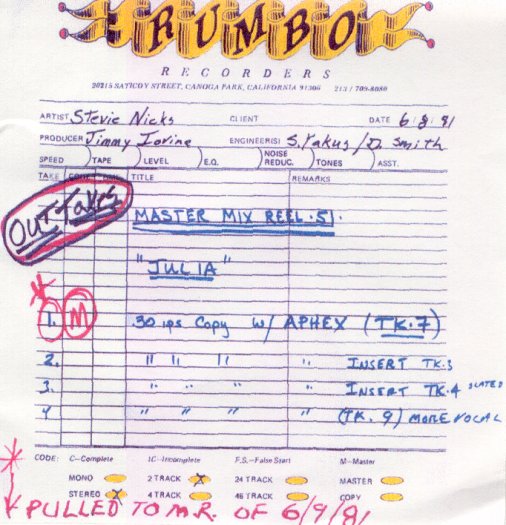 RUMBO
RECORDERS
20215 SATICOY STREET, CANOGA PARK, CALIFORNIA 91306 213 / 709-8080
ARTIST Stevie Nicks CLIENT DATE 6/8/81
PRODUCER Jimmy Iovine ENGINEER(S) S. Yakus / D. Smith
SPEED TAPE LEVEL E.Q. NOISE REDUC. TONES ASST.
TAKE CODE TITLE REMARKS
OUT TAKES
MASTER MIX REEL·5.
"JULIA"
1. M 30 ips Copy w/ APHEX (TK.7)
2. " " " " INSERT TK.3
3. " " " " INSERT TK.4 SLATED
4 " " " " (TK. 9) MORE VOCAL
CODE: C—Complete IC—Incomplete F.S.—False Start M—Master
MONO 2 TRACK X 24 TRACK MASTER
STEREO X 4 TRACK 46 TRACK COPY
PULLED TO M.R. OF 6/9/81